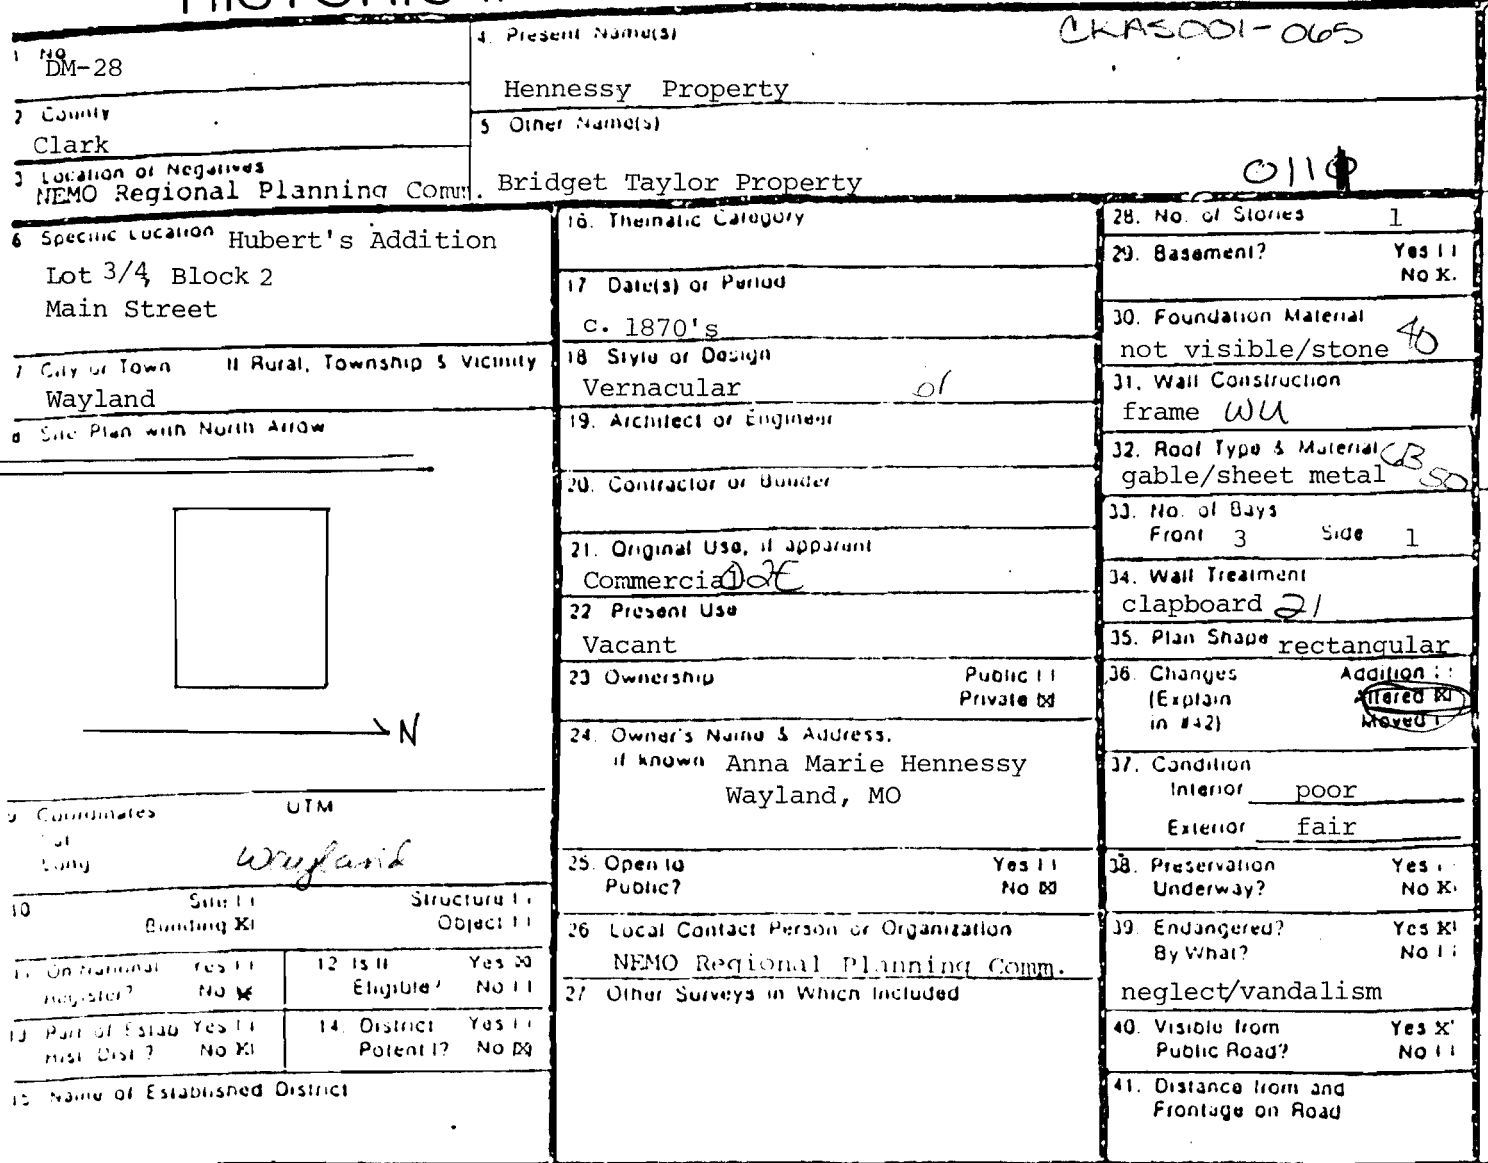 1 No.
DM-28
4. Present Name(s)
CKAS001-065
Hennessy Property
2 County
Clark
5 Other Name(s)
Bridget Taylor Property
011
3 Location of Negatives
NEMO Regional Planning Comm.
6 Specific Location Hubert's Addition
Lot 3/4, Block 2
Main Street
7 City or Town If Rural, Township & Vicinity
Wayland
8 Site Plan with North Arrow
N
9 Coordinates UTM
Lat
Long
Wayland
10 Site [ ] Structure [ ]
Building [X] Object [ ]
11. On National Yes [ ]
Register? No [X]
12 Is It Yes [X]
Eligible? No [ ]
13 Part of Estab Yes [ ]
Hist. Dist.? No [X]
14. District Yes [ ]
Potent'l? No [X]
15 Name of Established District
16. Thematic Category
17 Date(s) or Period
c. 1870's
18 Style or Design
Vernacular 01
19. Architect or Engineer
20. Contractor or Builder
21. Original Use, if apparent
Commercial 02E
22 Present Use
Vacant
23 Ownership Public [ ]
Private [X]
24. Owner's Name & Address,
if known Anna Marie Hennessy
Wayland, MO
25. Open to Yes [ ]
Public? No [X]
26 Local Contact Person or Organization
NEMO Regional Planning Comm.
27 Other Surveys in Which Included
28. No. of Stories 1
29. Basement? Yes [ ]
No X.
30. Foundation Material
not visible/stone 40
31. Wall Construction
frame WU
32. Roof Type & Material GB
gable/sheet metal 50
33. No. of Bays
Front 3 Side 1
34. Wall Treatment
clapboard 21
35. Plan Shape rectangular
36. Changes Addition [ ]
(Explain Altered [X]
in #42) Moved [ ]
37. Condition
Interior poor
Exterior fair
38. Preservation Yes [ ]
Underway? No [X]
39. Endangered? Yes [X]
By What? No [ ]
neglect/vandalism
40. Visible from Yes [X]
Public Road? No [ ]
41. Distance from and
Frontage on Road